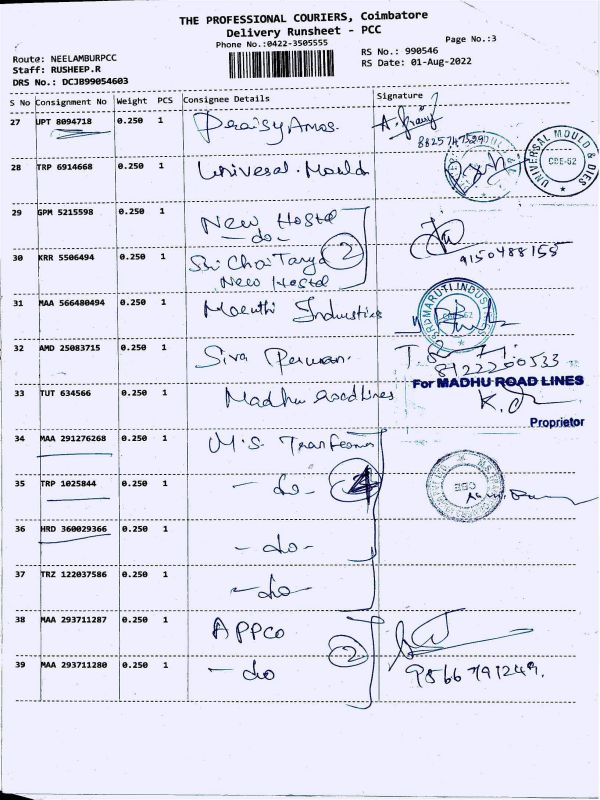 THE PROFESSIONAL COURIERS, Coimbatore
Delivery Runsheet - PCC
Phone No.:0422-3505555
Page No.:3
Route: NEELAMBURPCC
RS No.: 990546
Staff: RUSHEEP.R
RS Date: 01-Aug-2022
DRS No.: DCJB99054603
S No Consignment No Weight PCS Consignee Details Signature
27 UPT 8094718 0.250 1 Peraisy Amos.
8825747529
28 TRP 6914668 0.250 1 Universal. Mould
UNIVERSAL MOULD & DIES CBE-62
29 GPM 5215598 0.250 1 New Hostel
-do- 2
9150488155
30 KRR 5506494 0.250 1 Sri Chaitanya
New Hostel
31 MAA 566480494 0.250 1 Maruthi Industries
MARUTI INDUST CBE-62
32 AMD 25083715 0.250 1 Siva Peruman.
8122200533
33 TUT 634566 0.250 1 Madhu Road Lines
For MADHU ROAD LINES
Proprietor
34 MAA 291276268 0.250 1 M.S. Transformer
35 TRP 1025844 0.250 1 -do- 4
CBE
36 HRD 360029366 0.250 1 -do-
37 TRZ 122037586 0.250 1 -do-
38 MAA 293711287 0.250 1 APPCO
2
39 MAA 293711280 0.250 1 -do
9566791249.